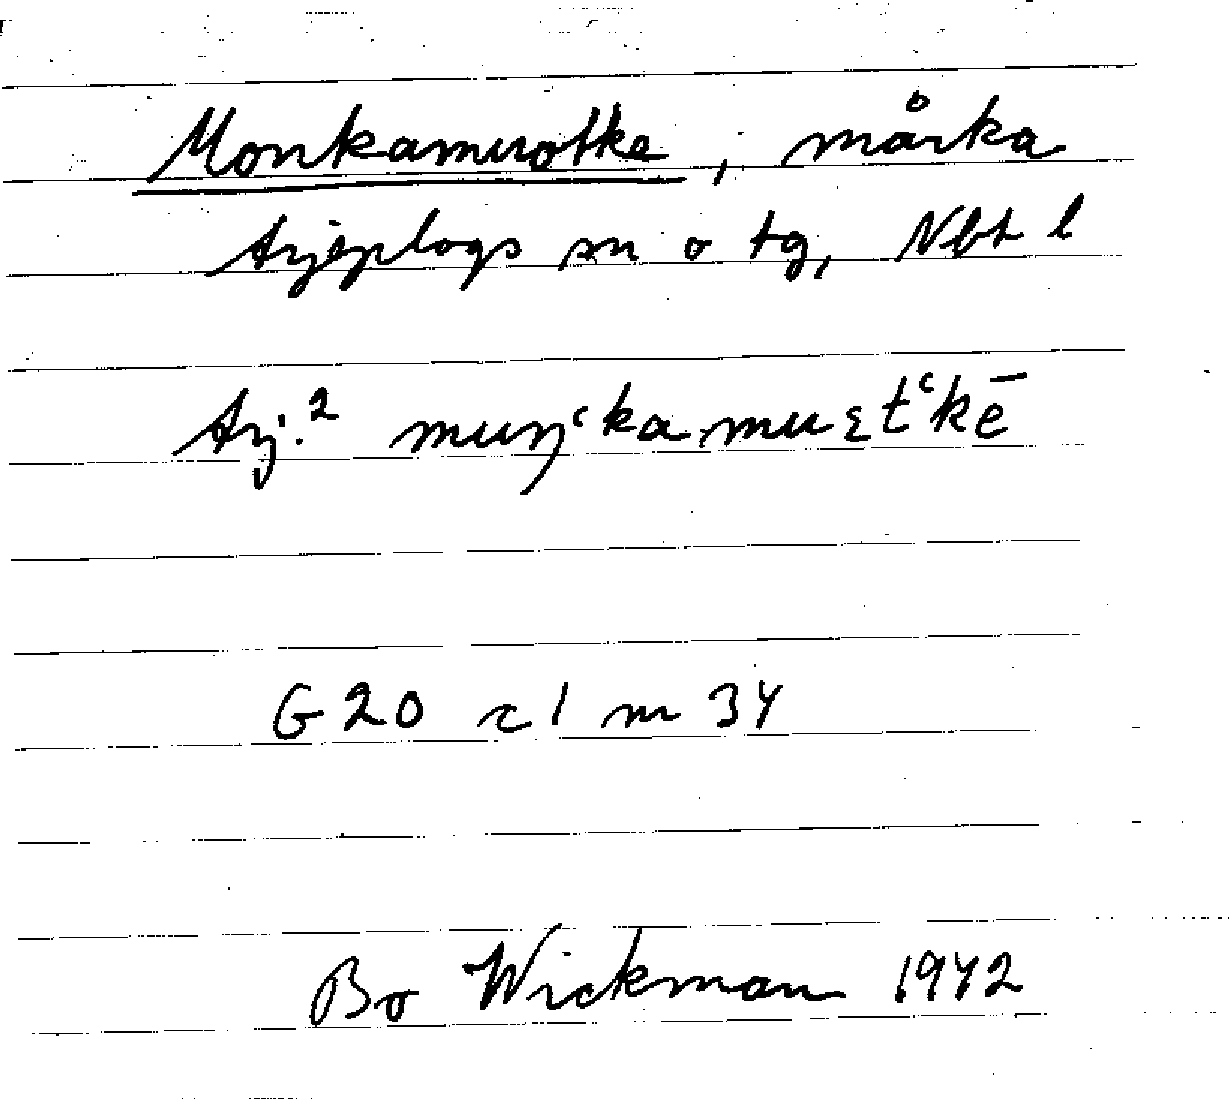 Monkamuotke, mårka
Arjeplogs sn o tg, Nbt l
Arj.² muŋʻkamuᴇtʻkē
G20 r1 m 34
Bo Wickman 1942